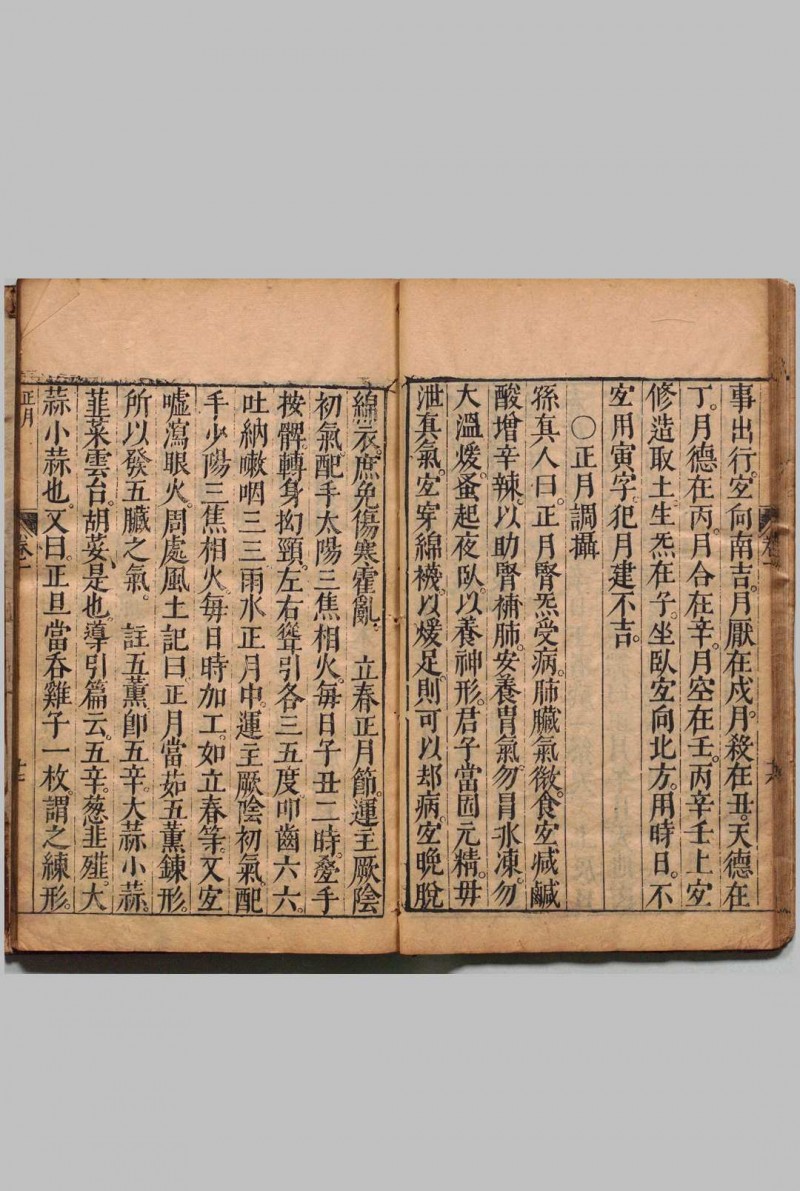 事出行。宐向南吉。月厭在戍。月殺在丑。天德在
丁。月德在丙。月合在辛。月空在壬。丙辛壬上宐
修造取土。生炁在子。坐臥宐向北方。用時日。不
宐用寅字。犯月建不吉。
○正月調攝
孫真人曰。正月腎炁受病。肺臟氣微。食宐減鹹
酸增辛辣。以助腎補肺。安養胃氣。勿冐氷凍。勿
大溫煖。蚤起夜臥。以養神形。君子當固元精。毋
泄真氣。宐穿綿襪。以煖足。則可以却病。宐晚脫
綿衣。庶免傷寒霍亂。 立春正月節。運主厥陰
初氣。配手太陽三焦相火。每日子丑二時。疊手
按髀。轉身拗頸。左右聳引各三五度。叩齒六六。
吐納嗽咽三三。雨水正月中。運主厥陰初氣。配
手少陽三焦相火。每日時加工。如立春等。又宐
噓瀉眼火。周處風土記曰。正月當茹五薰鍊形。
所以發五臟之氣。 註五薰。卽五辛。大蒜小蒜。
韮菜雲台。胡荽。是也。導引篇云。五辛。葱韭薤。大
蒜小蒜也。又曰。正旦當吞雞子一枚。謂之練形。
正月
卷一
卷一